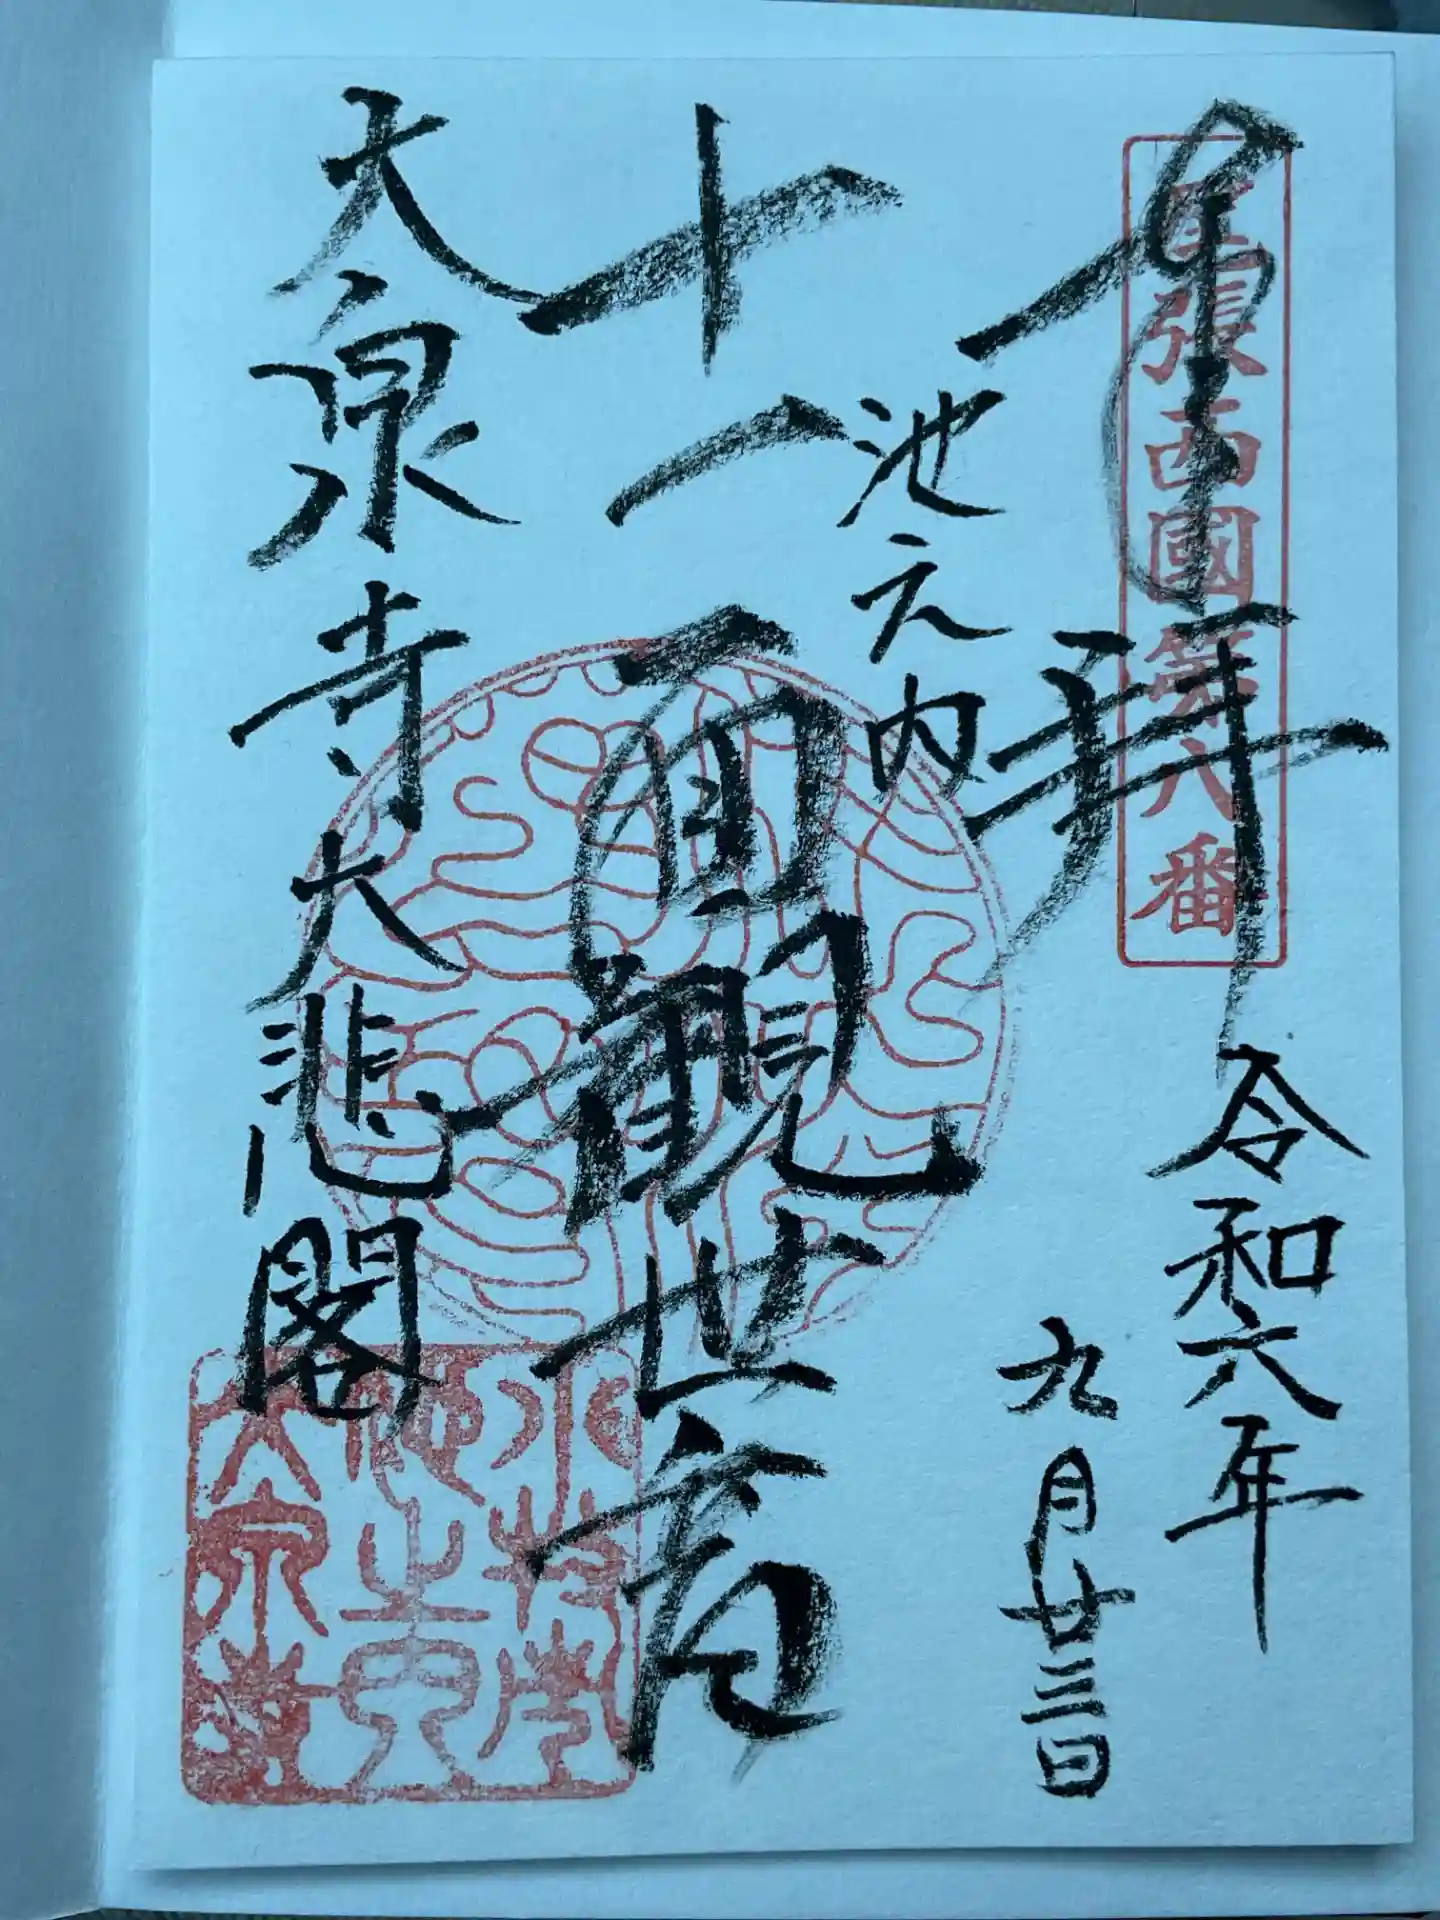 奉拝
尾張西國第八番
令和六年
九月廿三日
池之内
十一面観世音
大泉寺大悲閣